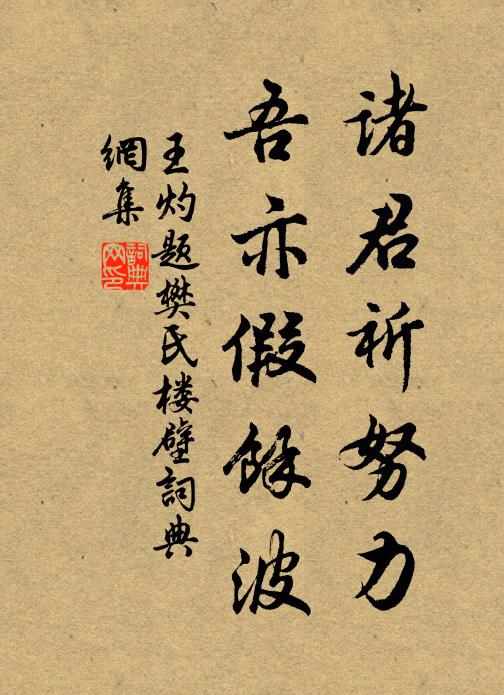 诸君祈努力
吾亦假馀波
王灼题樊氏楼壁詞典
網集
詞典網印